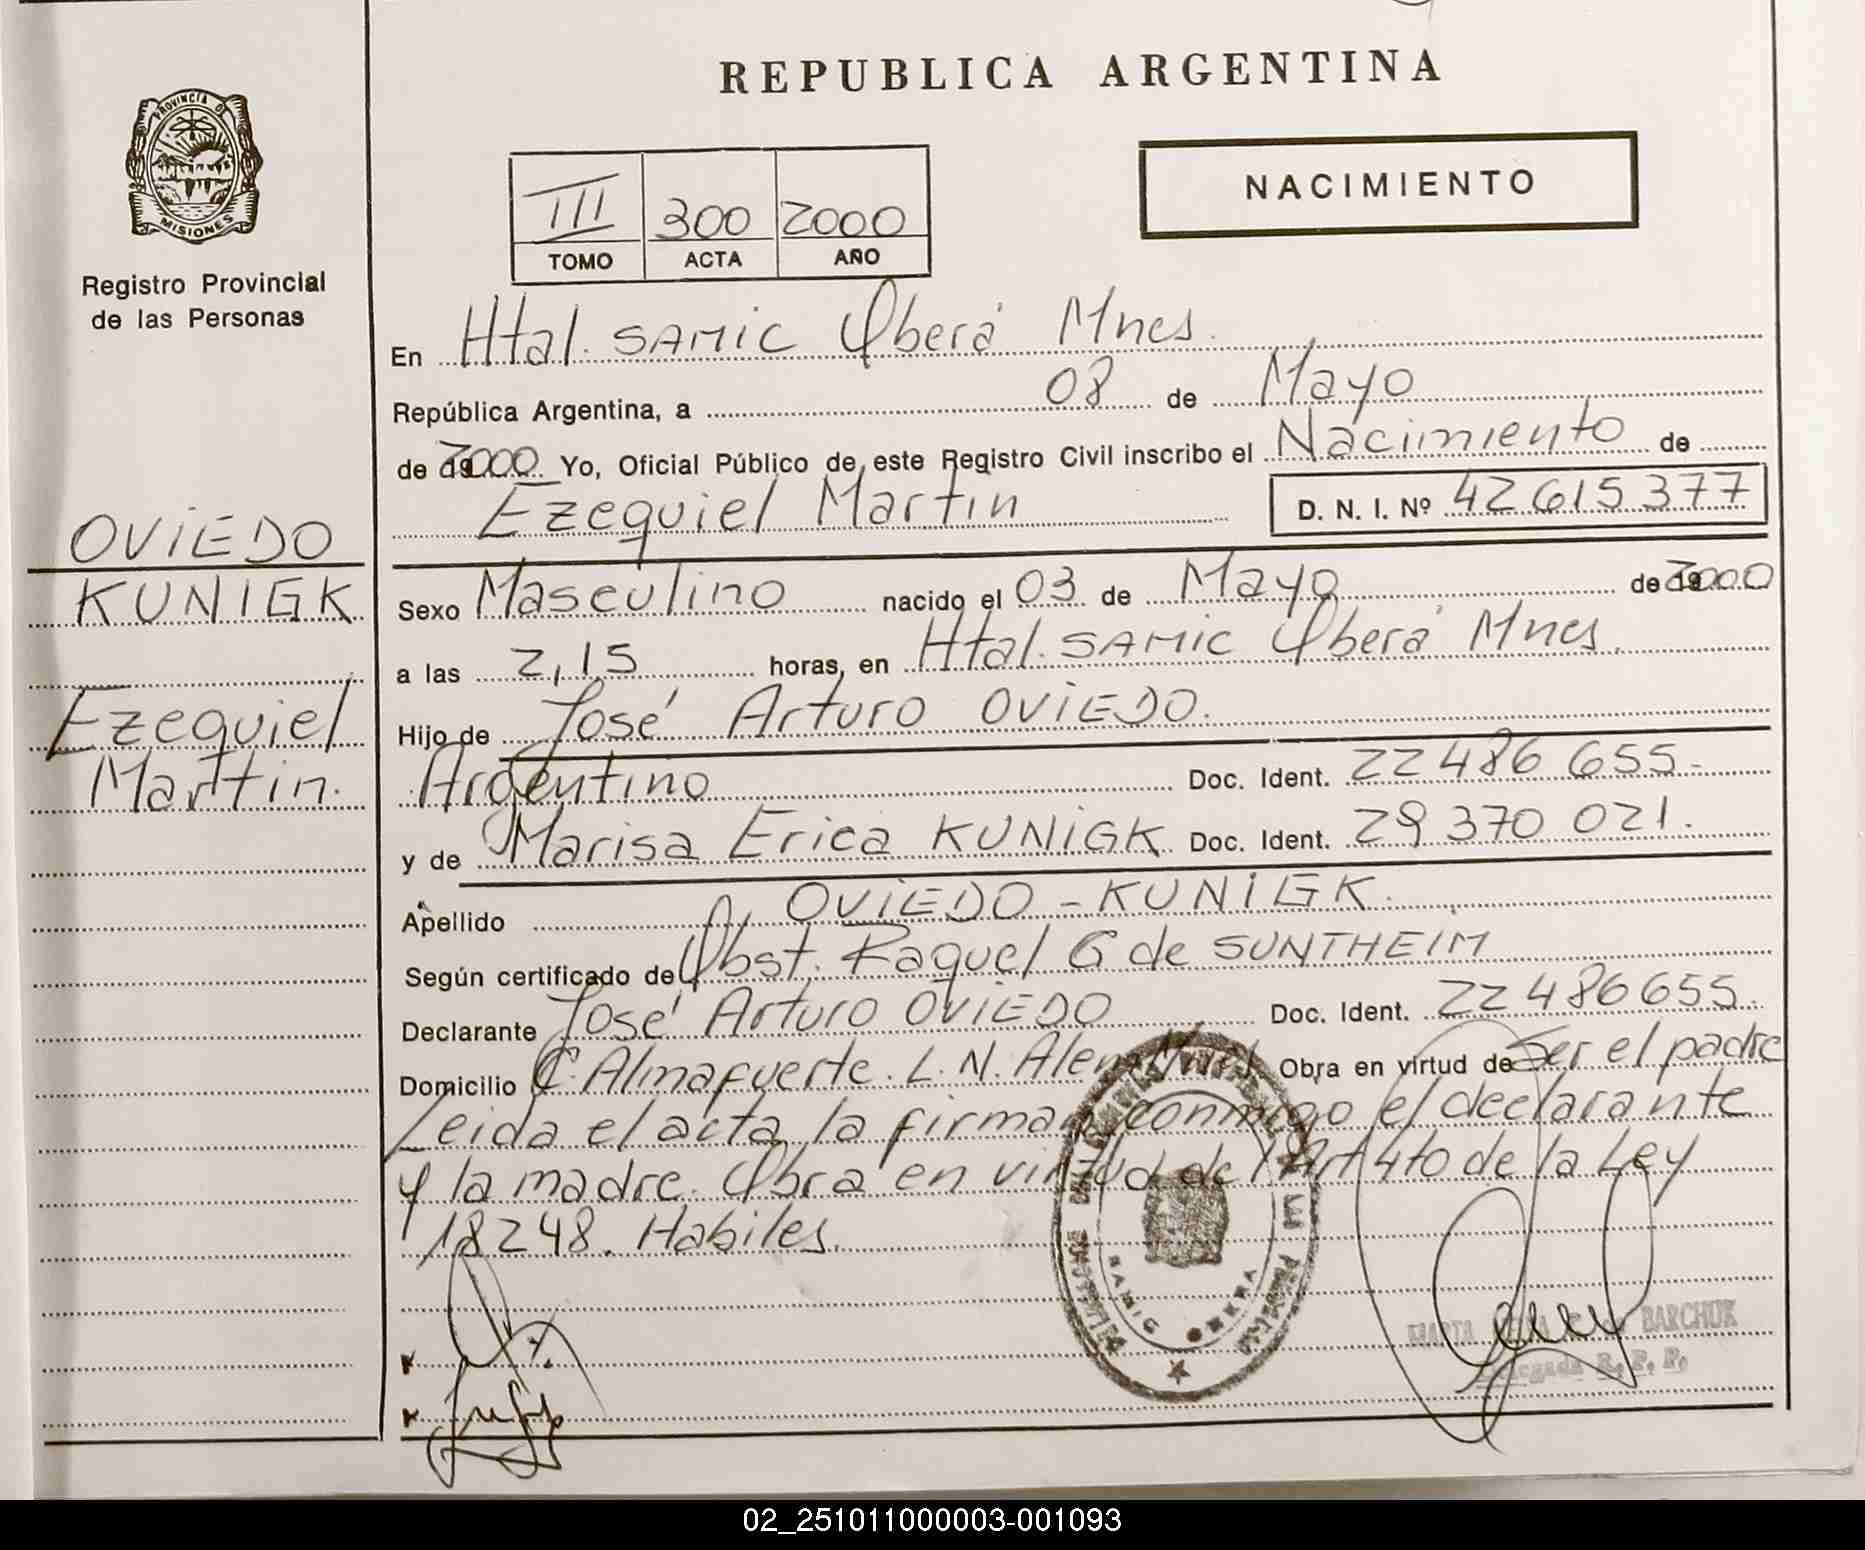 REPUBLICA ARGENTINA
PROVINCIA DE
MISIONES
Registro Provincial
de las Personas
III 300 2000
TOMO ACTA AÑO
NACIMIENTO
En Htal. SAMIC Oberá Mnes.
República Argentina, a 08 de Mayo
de 2000 Yo, Oficial Público de este Registro Civil inscribo el Nacimiento de
Ezequiel Martin D. N. I. Nº 42 615 377
OVIEDO
KUNIGK
Ezequiel
Martin.
Sexo Masculino nacido el 03 de Mayo de 2000
a las 2,15 horas, en Htal. SAMIC Oberá Mnes.
Hijo de José Arturo OVIEDO.
Argentino Doc. Ident. 22 486 655.-
y de Marisa Erica KUNIGK Doc. Ident. 29 370 021.
Apellido OVIEDO - KUNIGK.
Según certificado de Obst. Raquel G de SUNTHEIM
Declarante José Arturo OVIEDO Doc. Ident. 22 486 655.
Domicilio C. Almafuerte. L. N. Alem Mnes Obra en virtud de Ser el padre
Leida el acta, la firman conmigo el declarante
y la madre. Obra en virtud del Art 4to de la Ley
18248. Habiles.
SAMIC OBERA
MARTA BARCHUK
Delegada R. P. P.
02_251011000003-001093